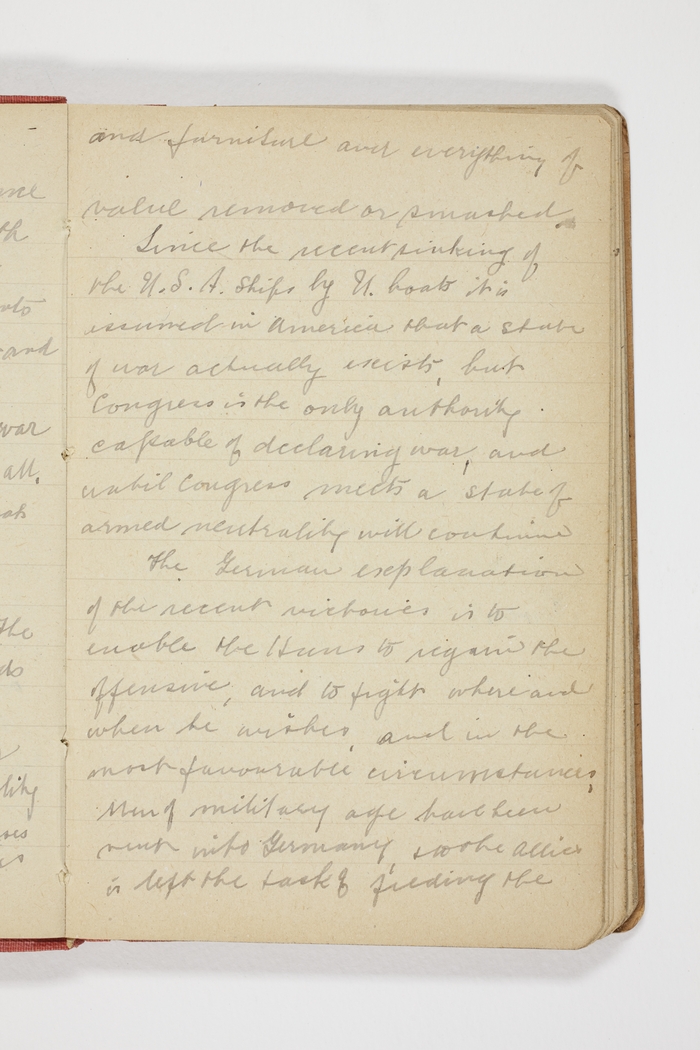 and furniture and everything of
value removed or smashed.
Since the recent sinking of
the U.S.A. ships by U. boats it is
assumed in America that a state
of war actually exists, but
Congress is the only authority
capable of declaring war, and
until Congress meets a state of
armed neutrality will continue
The German explanation
of the recent victories is to
enable the Huns to regain the
offensive, and to fight where and
when he wishes, and in the
most favourable circumstances,
Men of military age have been
sent into Germany, to the allies
is left the task of feeding the
me
th
into
and
war
all,
The